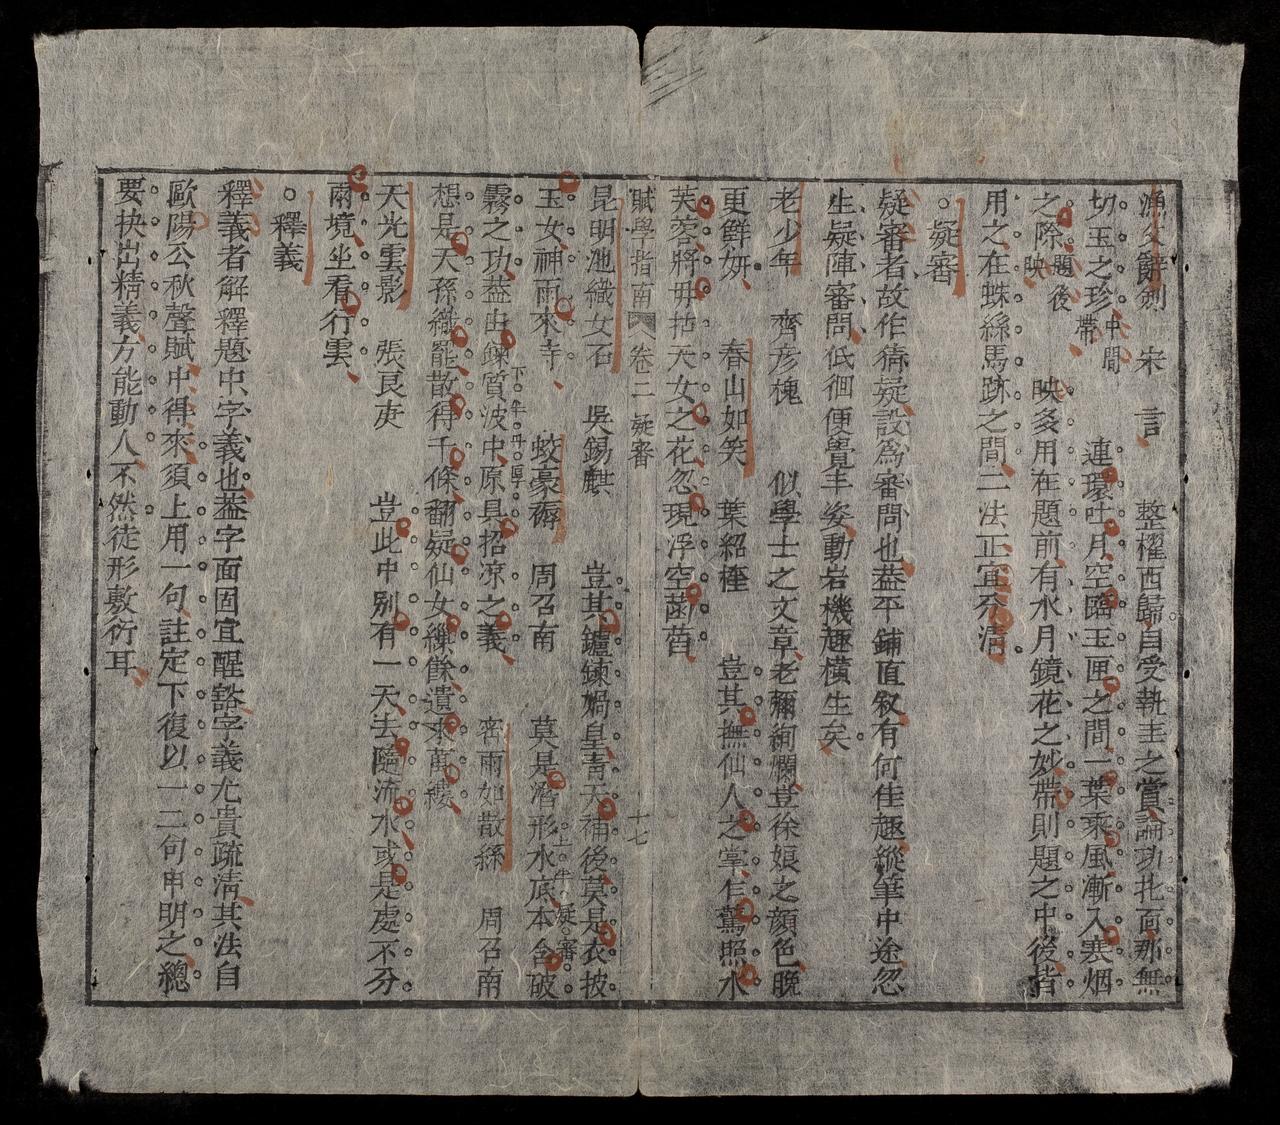 漁父辭劍　宋言　整櫂西歸自受執圭之賞論功扎面那無
切玉之珍中間帶　連環吐月空臨玉匣之間一葉乘風漸入寒烟
之際題後映　映多用在題前有水月鏡花之妙帶則題之中後皆
用之在蛛絲馬跡之間二法正宜分清
○疑審
疑審者故作猜疑設為審問也葢平鋪直敘有何佳趣縱筆中途忽
生疑陣審問低徊便覺丰姿動岩機趣橫生矣
老少年　齊彥槐　似學士之文章老彌絢爛豈徐娘之顏色晚
更鮮妍　春山如笑　葉紹楏　豈其撫仙人之掌乍驚照水
芙蓉將毋拈天女之花忽現浮空菡萏
賦學指南　卷二　疑審　十七
昆明池織女石　吳錫麒　豈其鑪鍊媧皇青天補後莫是衣披
玉女神雨來寺　蛟豪褥　周召南　莫是潛形水底本含破上半疑審
霧之功葢由鍊質波中原具招凉之義下半　密雨如散絲　周召南
想是天孫織罷散得千條翻疑仙女繅餘遺來萬縷
天光雲影　張艮庚　豈此中別有一天去隨流水或是處不分
南境坐看行雲
○釋義
釋義者解釋題中字義也葢字面固宜醒豁字義尤貴疏清其法自
歐陽公秋聲賦中得來須上用一句註定下復以一二句申明之總
要抉出精義方能動人不然徒形敷衍耳